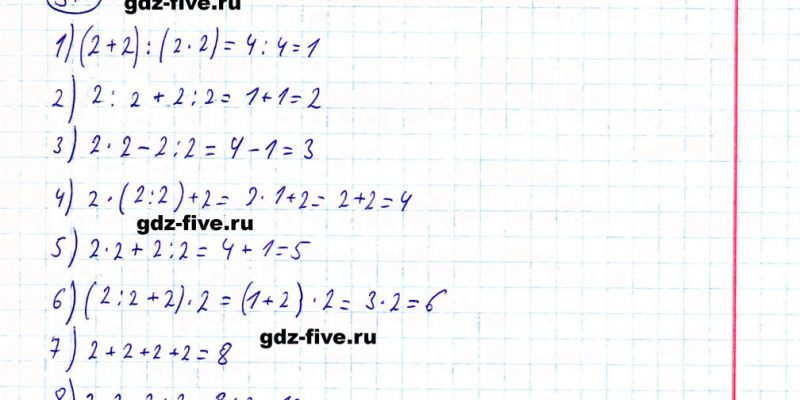 gdz-five.ru
1) (2+2) : (2·2) = 4 : 4 = 1
2) 2 : 2 + 2 : 2 = 1+1 = 2
3) 2·2 - 2 : 2 = 4 - 1 = 3
4) 2·(2:2)+2 = 2·1+2 = 2+2=4
gdz-five.ru
5) 2·2 + 2 : 2 = 4 + 1 = 5
6) (2 : 2 + 2)·2 = (1+2)·2 = 3·2 = 6
gdz-five.ru
7) 2+2+2+2=8